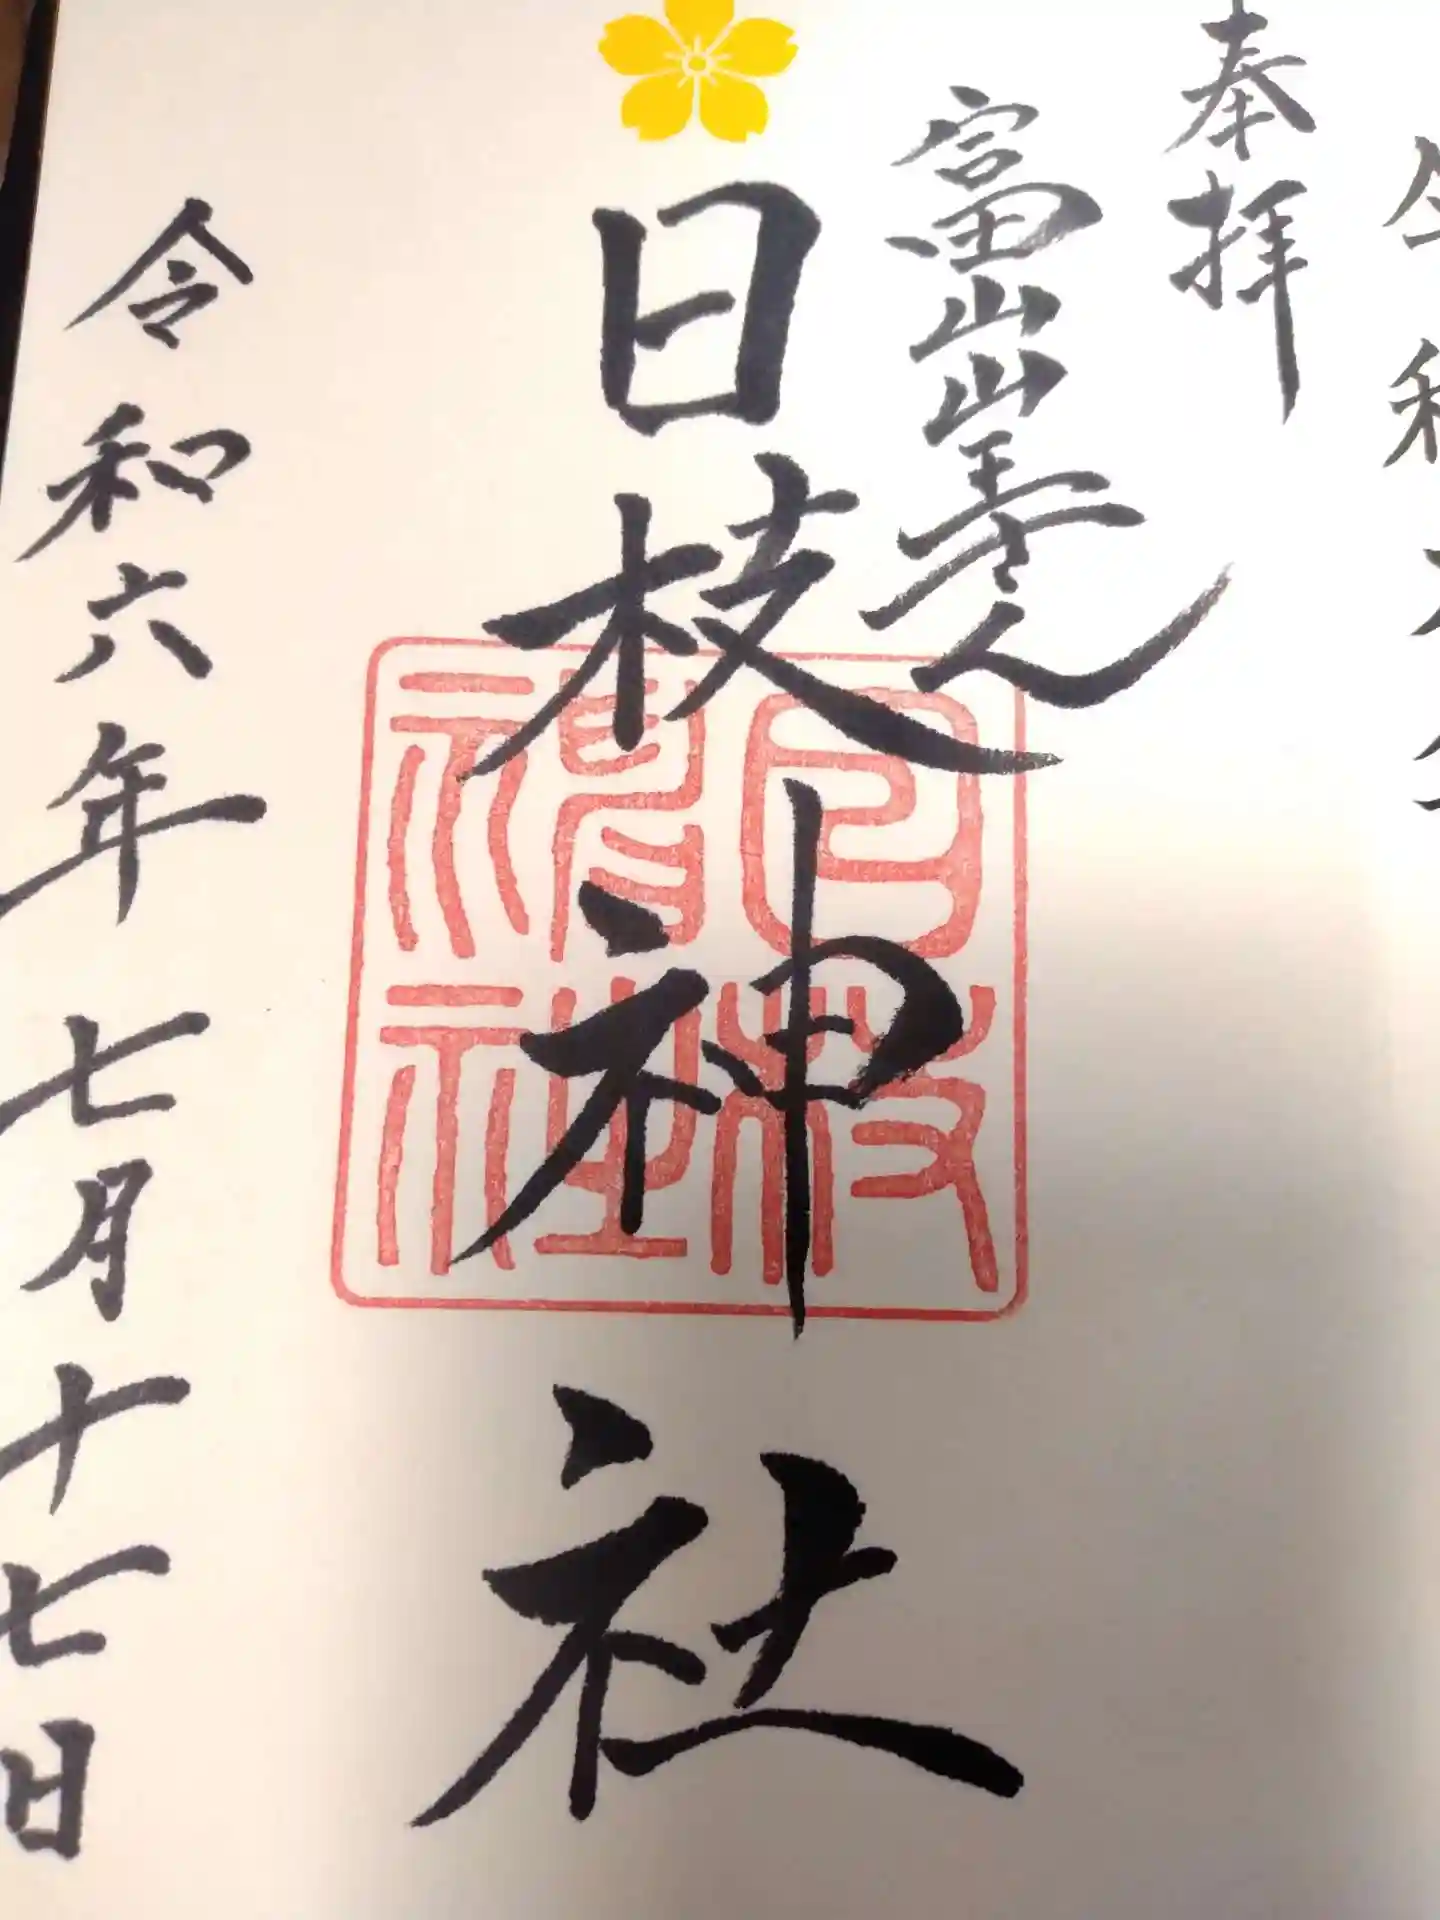 奉拝
富山山王さん
日枝神社
日枝
神社
令和六年七月十七日